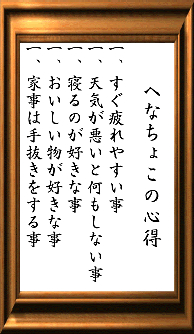 へなちょこの心得
一、すぐ疲れやすい事
一、天気が悪いと何もしない事
一、寝るのが好きな事
一、おいしい物が好きな事
一、家事は手抜きをする事